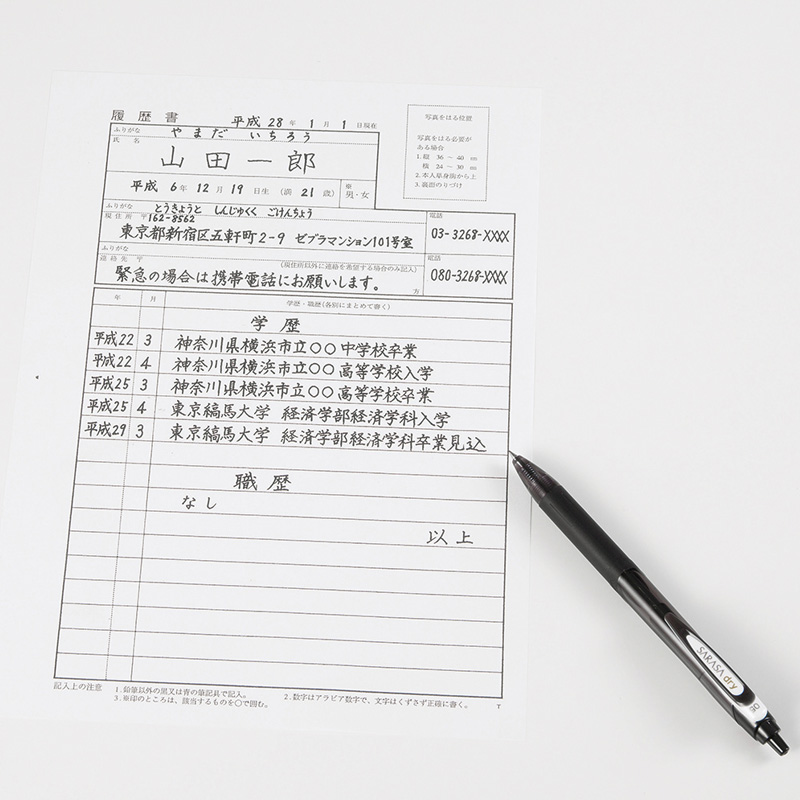 履歴書 平成 28 年 1 月 1 日現在
ふりがな やまだ いちろう
氏 名
山田一郎
平成 6年 12月 19日生 (満 21 歳) ※ 男・女
写真をはる位置
写真をはる必要が
ある場合
1. 縦 36 ～ 40 mm
横 24 ～ 30 mm
2. 本人単身胸から上
3. 裏面のりづけ
ふりがな とうきょうと しんじゅくく ごけんちょう
現住所 〒162-8562
東京都新宿区五軒町2-9 ゼブラマンション101号室
電話
03-3268-XXXX
ふりがな
連絡先 〒 (現住所以外に連絡を希望する場合のみ記入)
緊急の場合は携帯電話にお願いします。 方
電話
080-3268-XXXX
年 月 学歴・職歴(各別にまとめて書く)
学歴
平成22 3 神奈川県横浜市立○○中学校卒業
平成22 4 神奈川県横浜市立○○高等学校入学
平成25 3 神奈川県横浜市立○○高等学校卒業
平成25 4 東京縞馬大学 経済学部経済学科入学
平成29 3 東京縞馬大学 経済学部経済学科卒業見込
職歴
なし
以上
記入上の注意 1. 鉛筆以外の黒又は青の筆記具で記入。 2. 数字はアラビア数字で、文字はくずさず正確に書く。
3. ※印のところは、該当するものを○で囲む。 T
SARASA dry
0.5